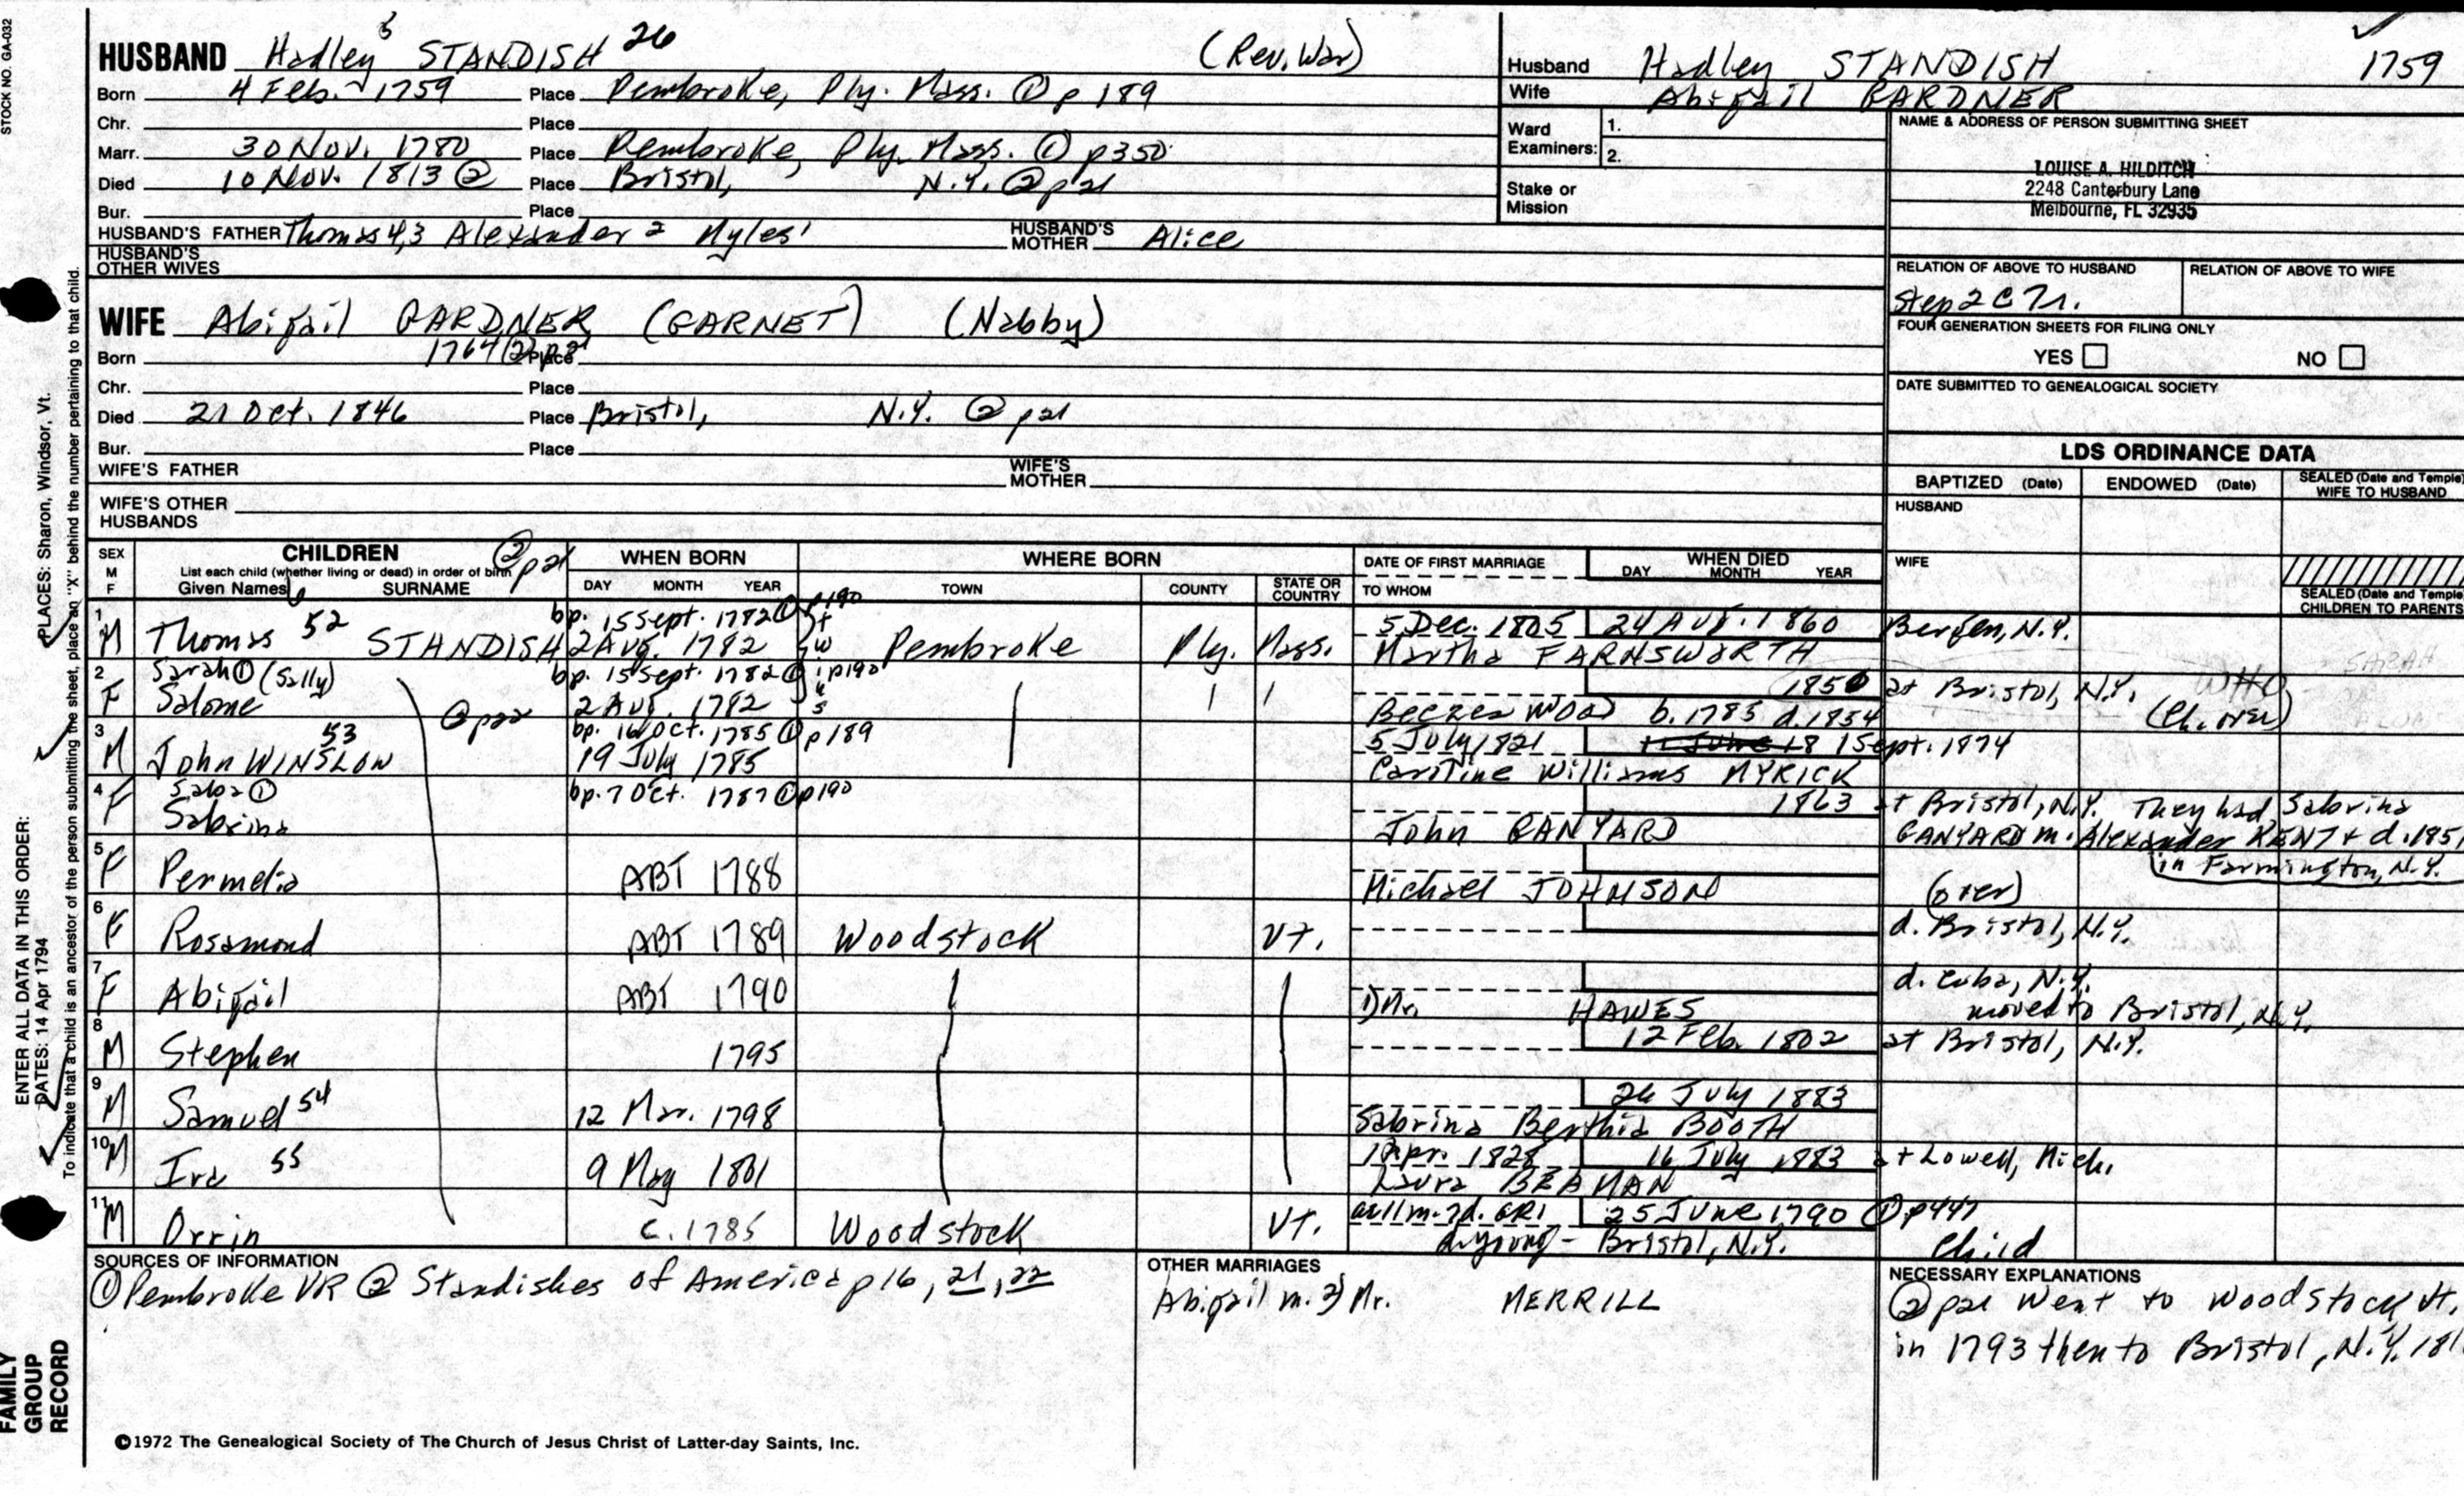 STOCK NO. GA-032
HUSBAND Hadley 5 STANDISH 26 (Rev. War)
Born 4 Feb. 1759 Place Pembroke, Ply. Mass. ① p 189
Chr. Place
Marr. 30 Nov. 1780 Place Pembroke, Ply. Mass. ① p350
Died 10 Nov. 1813 ② Place Bristol, N.Y. ② p21
Bur. Place
HUSBAND'S FATHER Thomas 4,3 Alexander 2 Myles 1 HUSBAND'S MOTHER Alice
HUSBAND'S OTHER WIVES
WIFE Abigail GARDNER (GARNET) (Nabby)
Born 1764 ② p21 Place
Chr. Place
Died 21 Oct. 1846 Place Bristol, N.Y. ② p21
Bur. Place
WIFE'S FATHER WIFE'S MOTHER
WIFE'S OTHER HUSBANDS
Husband Hadley STANDISH 1759
Wife Abigail GARDNER
Ward Examiners: 1.
2.
Stake or Mission
NAME & ADDRESS OF PERSON SUBMITTING SHEET
LOUISE A. HILDITCH
2248 Canterbury Lane
Melbourne, FL 32935
RELATION OF ABOVE TO HUSBAND RELATION OF ABOVE TO WIFE
Step 2C7r.
FOUR GENERATION SHEETS FOR FILING ONLY
YES NO
DATE SUBMITTED TO GENEALOGICAL SOCIETY
LDS ORDINANCE DATA
BAPTIZED (Date) ENDOWED (Date) SEALED (Date and Temple) WIFE TO HUSBAND
HUSBAND
WIFE
SEALED (Date and Temple) CHILDREN TO PARENTS
SEX M F CHILDREN ② p21 WHEN BORN WHERE BORN DATE OF FIRST MARRIAGE WHEN DIED
List each child (whether living or dead) in order of birth DAY MONTH YEAR TOWN COUNTY STATE OR COUNTRY TO WHOM DAY MONTH YEAR
Given Names SURNAME
1 bp. 15 Sept. 1782 ① p190 5 Dec. 1805 24 Aug. 1860 Bergen, N.Y.
M Thomas 52 STANDISH 2 Aug. 1782 Pembroke Ply. Mass. Martha FARNSWORTH
twins
2 Sarah ① (Sally) bp. 15 Sept. 1782 ① p190 1850 at Bristol, N.Y. WHO SARAH
F Salome ② p22 2 Aug. 1782 Beezer WOOD b. 1785 d. 1854 (Ch. over)
3 53 bp. 16 Oct. 1785 ① p189 5 July 1821 11 June 18 1 Sept. 1874
M John WINSLOW 19 July 1785 Caroline Williams MYRICK
4 Saba ① bp. 7 Oct. 1787 ① p190 1863 at Bristol, N.Y. They had Sabrina
F Sabrina John GANYARD GANYARD m. Alexander KENT + d. 185
in Farmington, N.Y.
5 F Permelia ABT 1788 Michael JOHNSON (over)
6 F Rosamond ABT 1789 Woodstock Vt. d. Bristol, N.Y.
7 F Abigail ABT 1790 1) Mr. HAWES d. Cuba, N.Y.
moved to Bristol, N.Y.
8 M Stephen 1795 12 Feb. 1802 at Bristol, N.Y.
9 M Samuel 54 12 Mar. 1798 26 July 1883
Sabrina Berthia BOOTH
10 M Ira 55 9 May 1801 1 Apr. 1828 16 July 1883 at Lowell, Mich.
Laura BEAMAN
11 M Orrin c. 1785 Woodstock Vt. GR1 25 June 1790 ① p447
d. young - Bristol, N.Y. Child
SOURCES OF INFORMATION
① Pembroke VR ② Standishes of America p 16, 21, 22
OTHER MARRIAGES
Abigail m. 2) Mr. MERRILL
NECESSARY EXPLANATIONS
② p21 Went to Woodstock Vt.
in 1793 then to Bristol, N.Y. 181
©1972 The Genealogical Society of The Church of Jesus Christ of Latter-day Saints, Inc.
ENTER ALL DATA IN THIS ORDER:
DATES: 14 Apr 1794
PLACES: Sharon, Windsor, Vt.
To indicate that a child is an ancestor of the person submitting the sheet, place an "X" behind the number pertaining to that child.
FAMILY
GROUP
RECORD